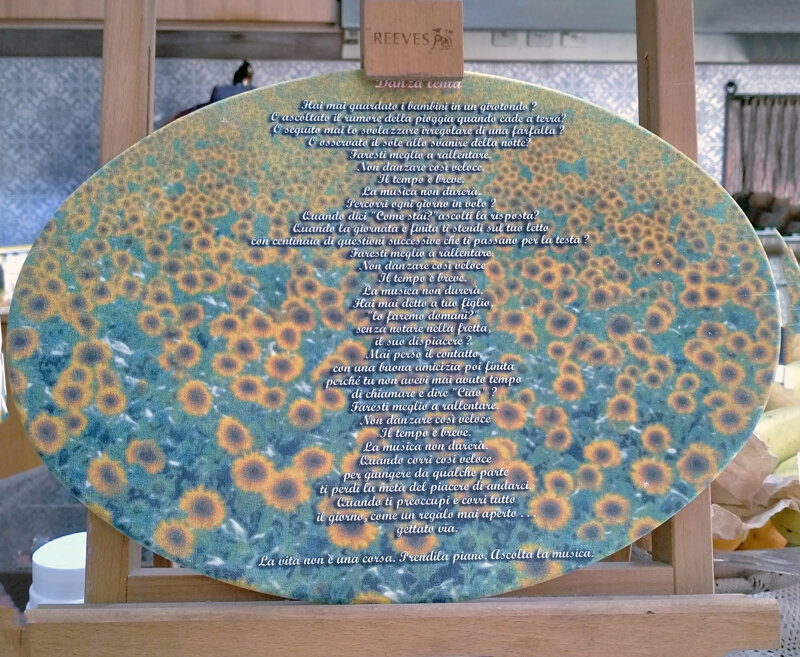 REEVES
Danza lenta
Hai mai guardato i bambini in un girotondo ?
O ascoltato il rumore della pioggia quando cade a terra?
O seguito mai lo svolazzare irregolare di una farfalla ?
O osservato il sole allo svanire della notte?
Faresti meglio a rallentare.
Non danzare così veloce.
Il tempo è breve.
La musica non durerà.
Percorri ogni giorno in volo ?
Quando dici "Come stai?" ascolti la risposta?
Quando la giornata è finita ti stendi sul tuo letto
con centinaia di questioni successive che ti passano per la testa ?
Faresti meglio a rallentare.
Non danzare così veloce
Il tempo è breve.
La musica non durerà.
Hai mai detto a tuo figlio,
"lo faremo domani?"
senza notare nella fretta,
il suo dispiacere ?
Mai perso il contatto
con una buona amicizia poi finita
perché tu non avevi mai avuto tempo
di chiamare e dire "Ciao" ?
Faresti meglio a rallentare.
Non danzare così veloce
Il tempo è breve.
La musica non durerà.
Quando corri così veloce
per giungere da qualche parte
ti perdi la metà del piacere di andarci.
Quando ti preoccupi e corri tutto
il giorno, come un regalo mai aperto . . .
gettato via.
La vita non è una corsa. Prendila piano. Ascolta la musica.